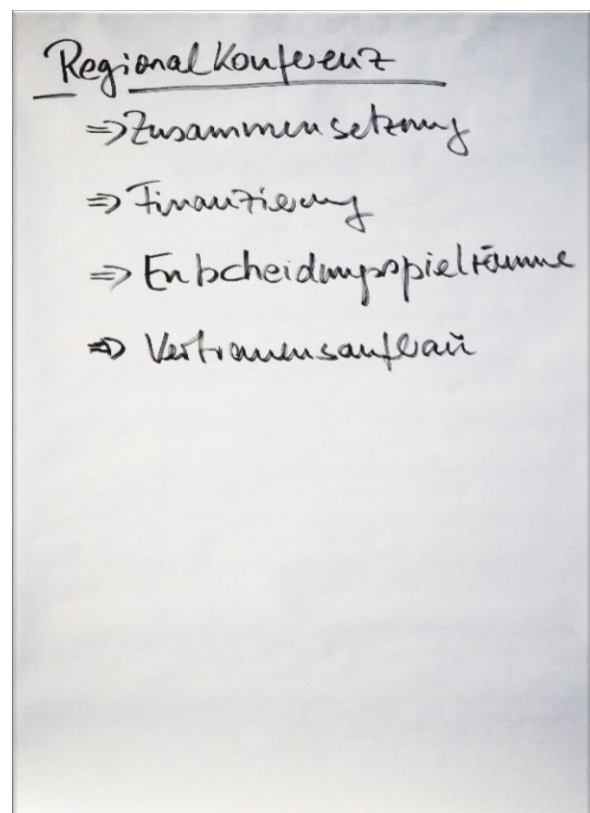 Regionalkonferenz
⇒ Zusammensetzung
⇒ Finanzierung
⇒ Entscheidungsspielräume
⇒ Vertrauensaufbau